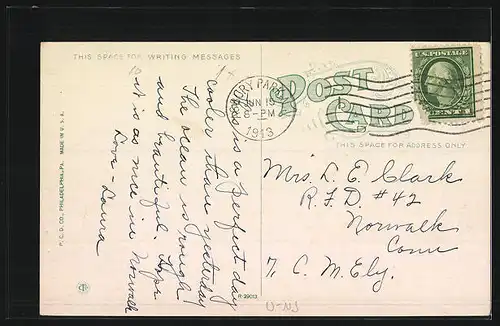 THIS SPACE FOR WRITING MESSAGES
This is a perfect day
cooler than yesterday
The ocean is rough
and beautiful. Hope
it is as nice in Norwalk
Love - Laura
P. C. D. CO., PHILADELPHIA, PA. MADE IN U.S.A.
R-29013
ASBURY PARK
JUN 15
6-PM
1913
POST
CARD
U.S. POSTAGE
CENT
THIS SPACE FOR ADDRESS ONLY
Mrs. L. E. Clark
R.F.D. #42
Norwalk
Conn
% C. M. Ely.
U-NJ